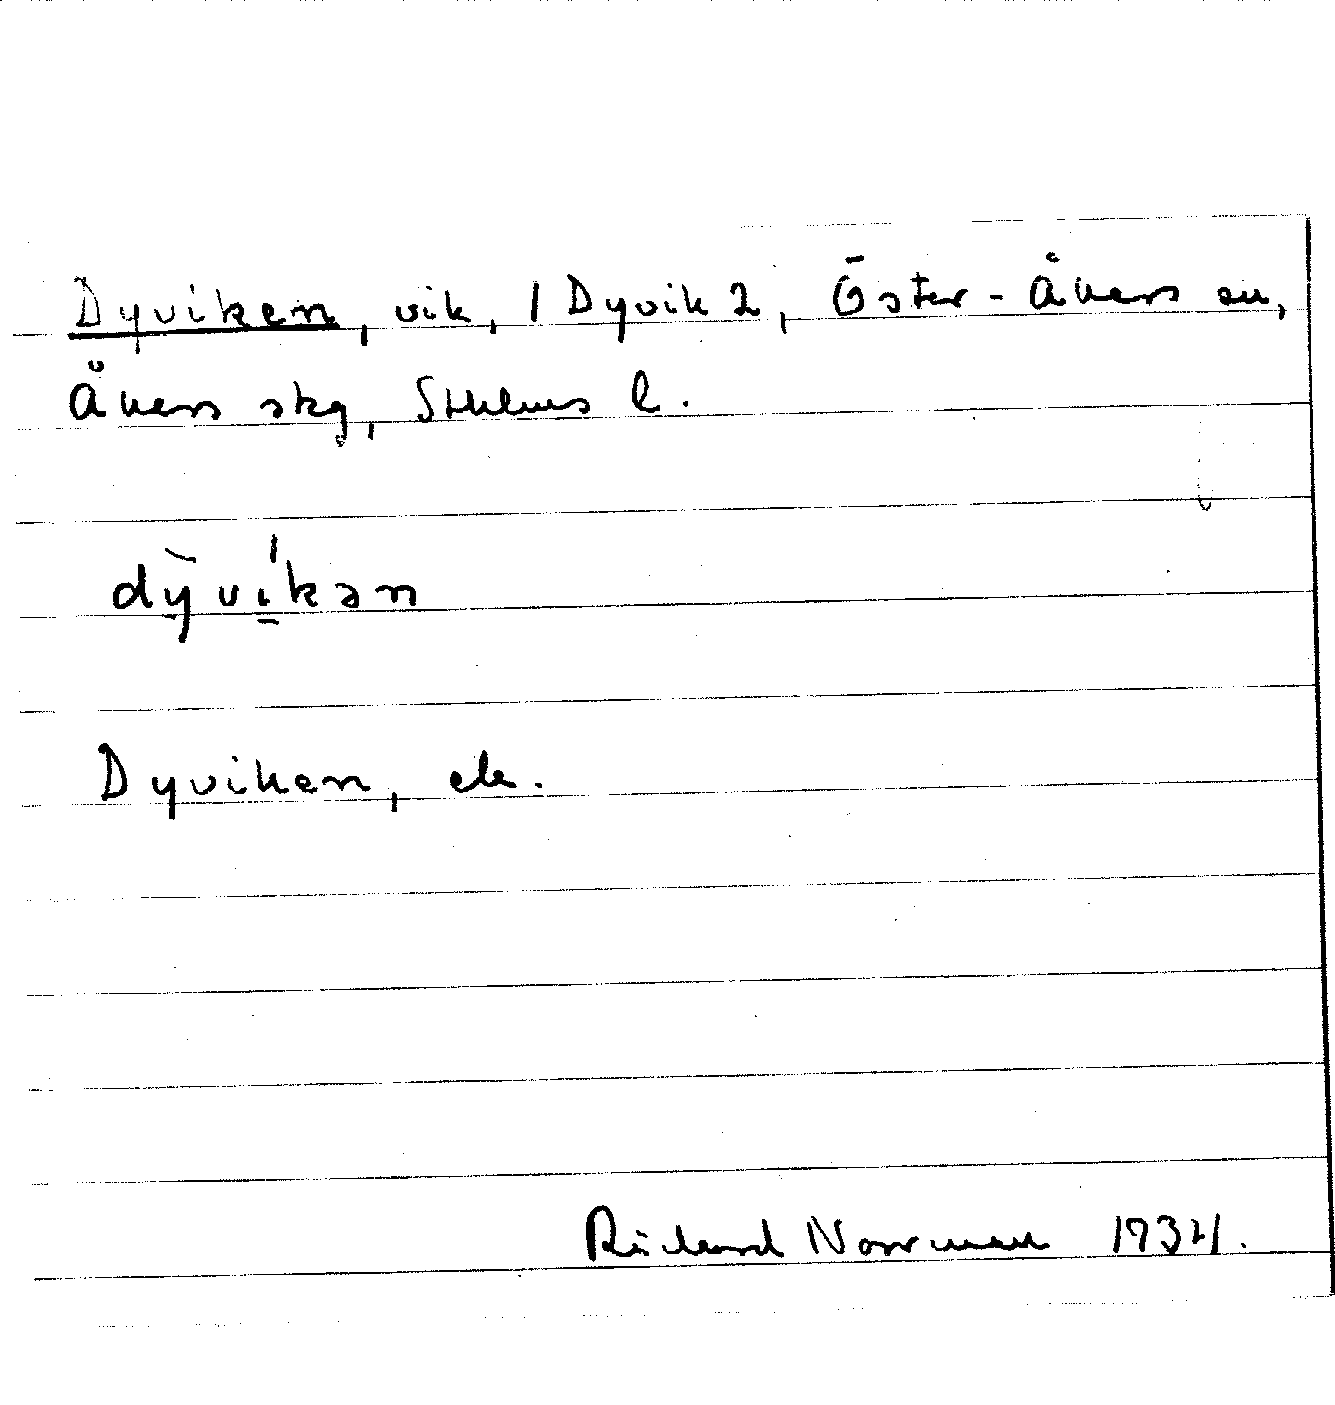 Dyviken, vik, 1 Dyvik 2, Öster-Åkers sn,
Åkers skg, Sthlms l.
dỳ̱ví̱kən
Dyviken, ek.
Richard Norrman 1934.